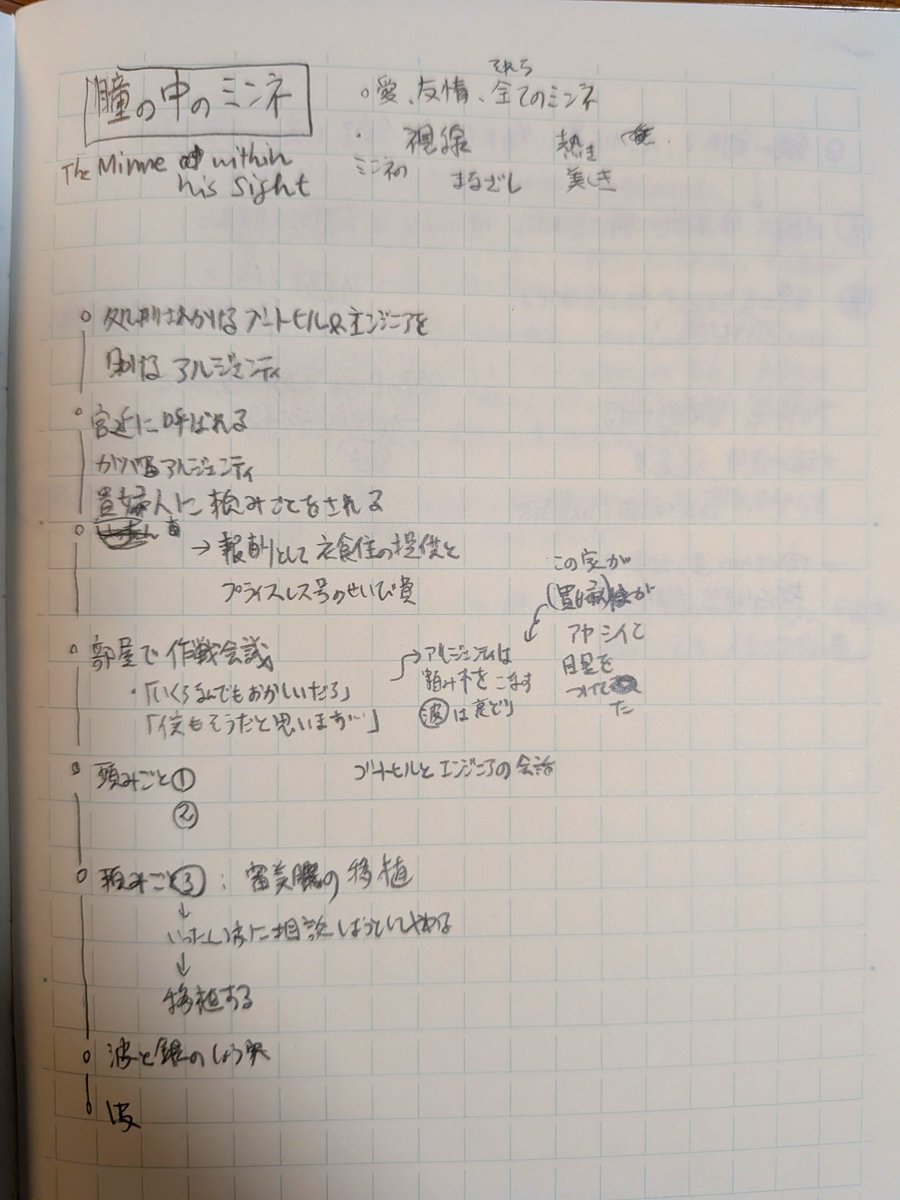 瞳の中のミンネ
The Minne within
his sight
それら
○愛、友情、全てのミンネ
・視線 熱き
ミンネの まなざし 美しき
○処刑されかけるブートヒル&エンジニアを
助けるアルジェンティ
○宮廷に呼ばれる
かばうアルジェンティ
貴婦人に頼みごとをされる
→報酬として衣食住の提供と
プライスレス号のせいび費
この家が
(貴婦人)が
アヤシイと
目星を
つけてた
○部屋で作戦会議
・「いくらなんでもおかしいだろ」
「僕もそうだと思います…」
→アルジェンティは
頼み事をこなす
彼は
○頼みごと①
②
ブートヒルとエンジニアの会話
○頼みごと③:審美眼の移植
↓
いったん彼に相談しようとしてやめる
↓
移植する
○彼と銀のしょう突
○彼